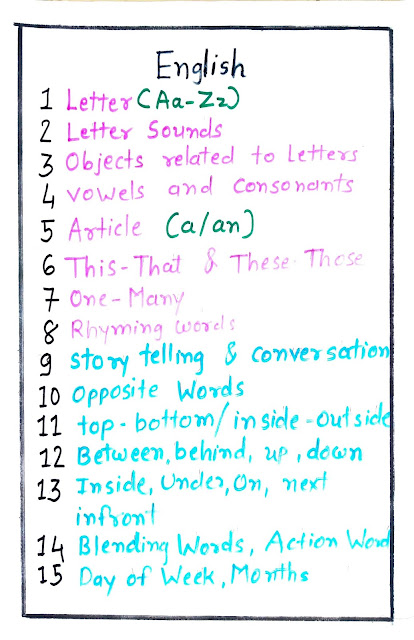 English
1 Letter (Aa-Zz)
2 Letter Sounds
3 Objects related to Letters
4 vowels and Consonants
5 Article (a/an)
6 This-That & These-Those
7 One-Many
8 Rhyming words
9 story telling & conversation
10 Opposite Words
11 top-bottom/inside-outside
12 Between, behind, up, down
13 Inside, Under, On, next
infront
14 Blending Words, Action Word
15 Day of Week, Months